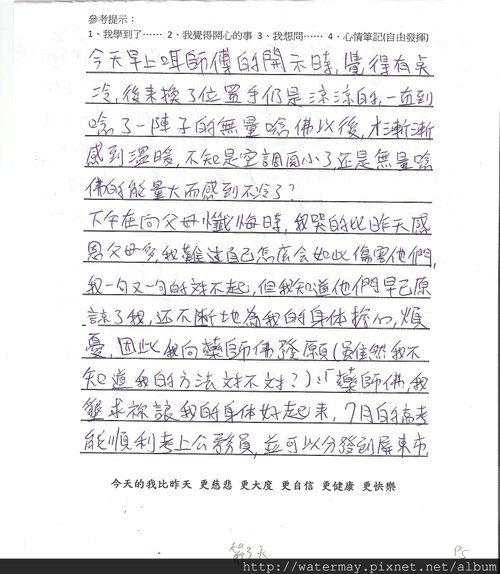 參考提示：
1、我學到了⋯⋯ 2、我覺得開心的事 3、我想問⋯⋯ 4、心情筆記(自由發揮)
今天早上聽師傅的開示時，覺得有點
冷，後來換了位置手仍是涼涼的，一直到
唸了一陣子的無量唸佛以後，才漸漸
感到溫暖，不知是空調關小了，還是無量唸
佛的能量大而感到不冷了？
下午在向父母懺悔時，我哭的比昨天感
恩父母多，我難過自己怎麼会如此傷害他們，
我一句又一句的対不起，但我知道他們早已原
諒了我，还不断地為我的身体擔心，煩
憂，因此我向藥師佛發願(雖然我不
知道我的方法対不対？)：「藥師佛，我
懇求祢讓我的身体好起來，7月的高考
能順利考上公務員，並可以分發到屏東市，
今天的我比昨天 更慈悲 更大度 更自信 更健康 更快樂
第3天 P5
http://watermay.pixnet.net/album